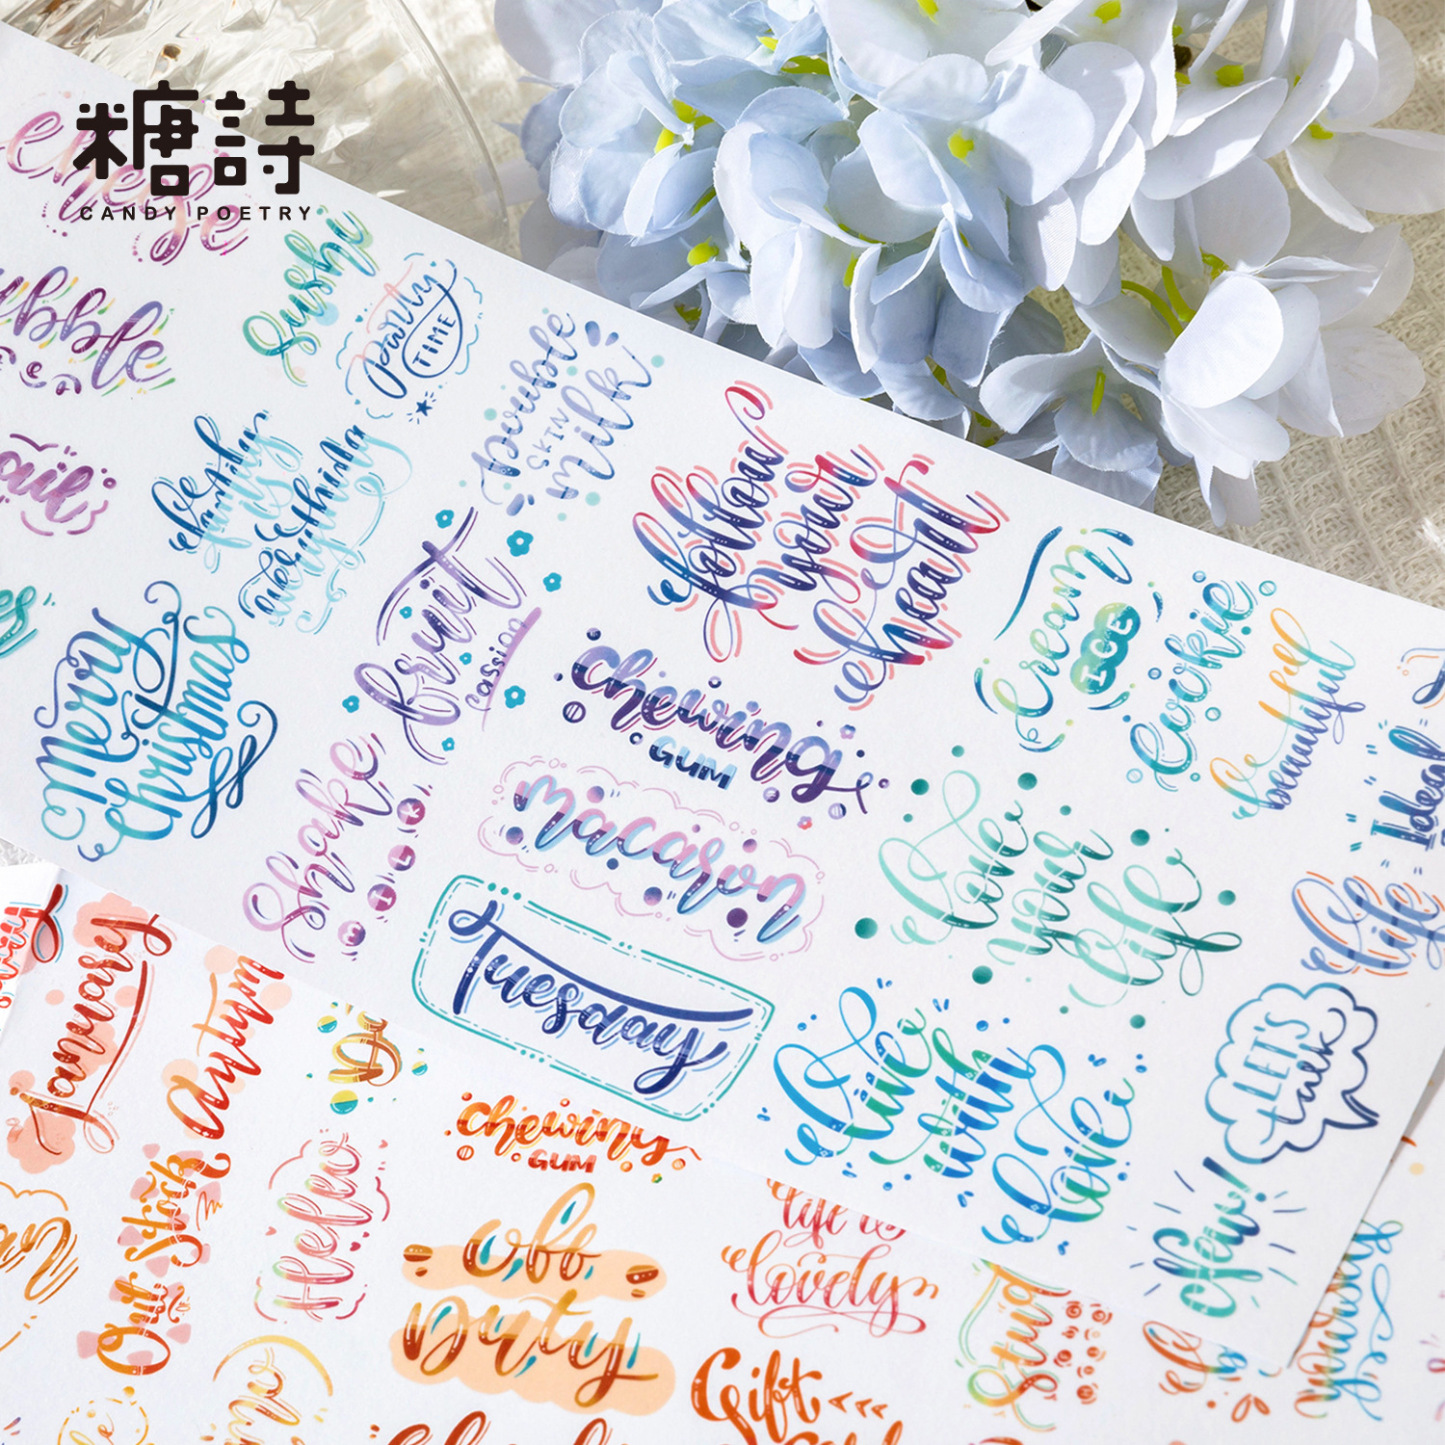 糖詩
CANDY POETRY
cheese
Sushi
party
TIME
Double
SKIN
milk
family
is
everything
Merry
Christmas
fruit
passion
follow
your
heart
Cream
ICE
Cookie
be
beautiful
Ideal
chewing
GUM
Shake
SILK
macaron
Love
your
life
life
Tuesday
Live
with
love
LET'S
talk
New!
January
autumn
chewing
GUM
Out Stock
Hello
Off
Duty
life is
lovely
Gift
yourself